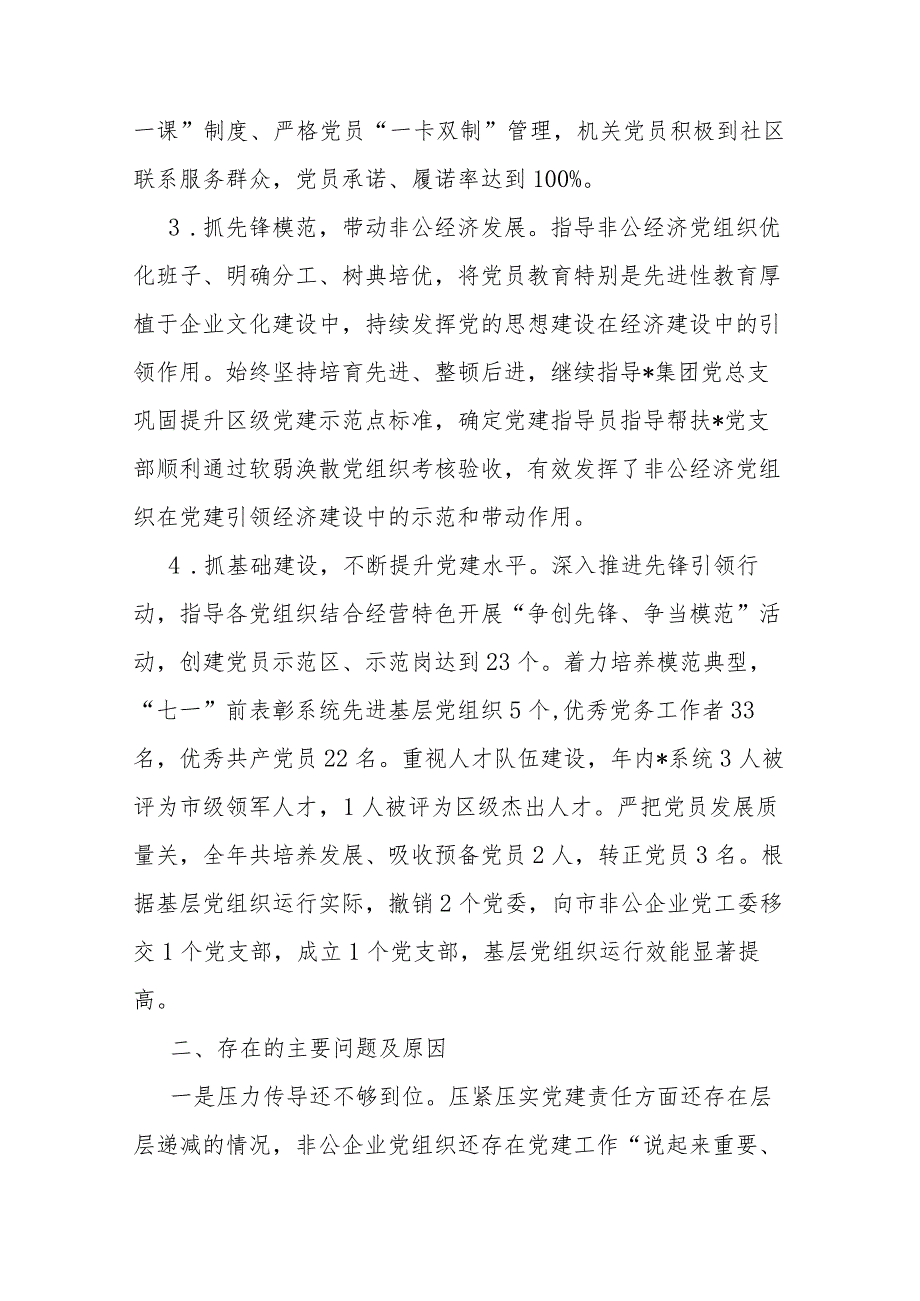 一课”制度、严格党员“一卡双制”管理，机关党员积极到社区
联系服务群众，党员承诺、履诺率达到100%。
3．抓先锋模范，带动非公经济发展。指导非公经济党组织优
化班子、明确分工、树典培优，将党员教育特别是先进性教育厚
植于企业文化建设中，持续发挥党的思想建设在经济建设中的引
领作用。始终坚持培育先进、整顿后进，继续指导*集团党总支
巩固提升区级党建示范点标准，确定党建指导员指导帮扶*党支
部顺利通过软弱涣散党组织考核验收，有效发挥了非公经济党组
织在党建引领经济建设中的示范和带动作用。
4．抓基础建设，不断提升党建水平。深入推进先锋引领行
动，指导各党组织结合经营特色开展“争创先锋、争当模范”活
动，创建党员示范区、示范岗达到23个。着力培养模范典型，
“七一”前表彰系统先进基层党组织5个,优秀党务工作者33
名，优秀共产党员22名。重视人才队伍建设，年内*系统3人被
评为市级领军人才，1人被评为区级杰出人才。严把党员发展质
量关，全年共培养发展、吸收预备党员2人，转正党员3名。根
据基层党组织运行实际，撤销2个党委，向市非公企业党工委移
交1个党支部，成立1个党支部，基层党组织运行效能显著提
高。
二、存在的主要问题及原因
一是压力传导还不够到位。压紧压实党建责任方面还存在层
层递减的情况，非公企业党组织还存在党建工作“说起来重要、